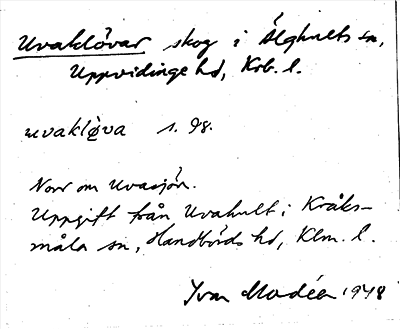 Uvaklövar skog i Älghults sn,
Uppvidinge hd, Krb. l.
uvaklø̀va s. 98.
Norr om Uvasjön.
Uppgift från Uvahult i Kråks-
måla sn, Handbörds hd, Klm. l.
Ivar Modéer 1948